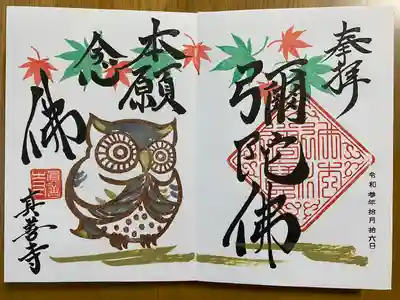 奉拝
彌陀佛
令和参年拾月拾六日
本願
念
佛
真善寺